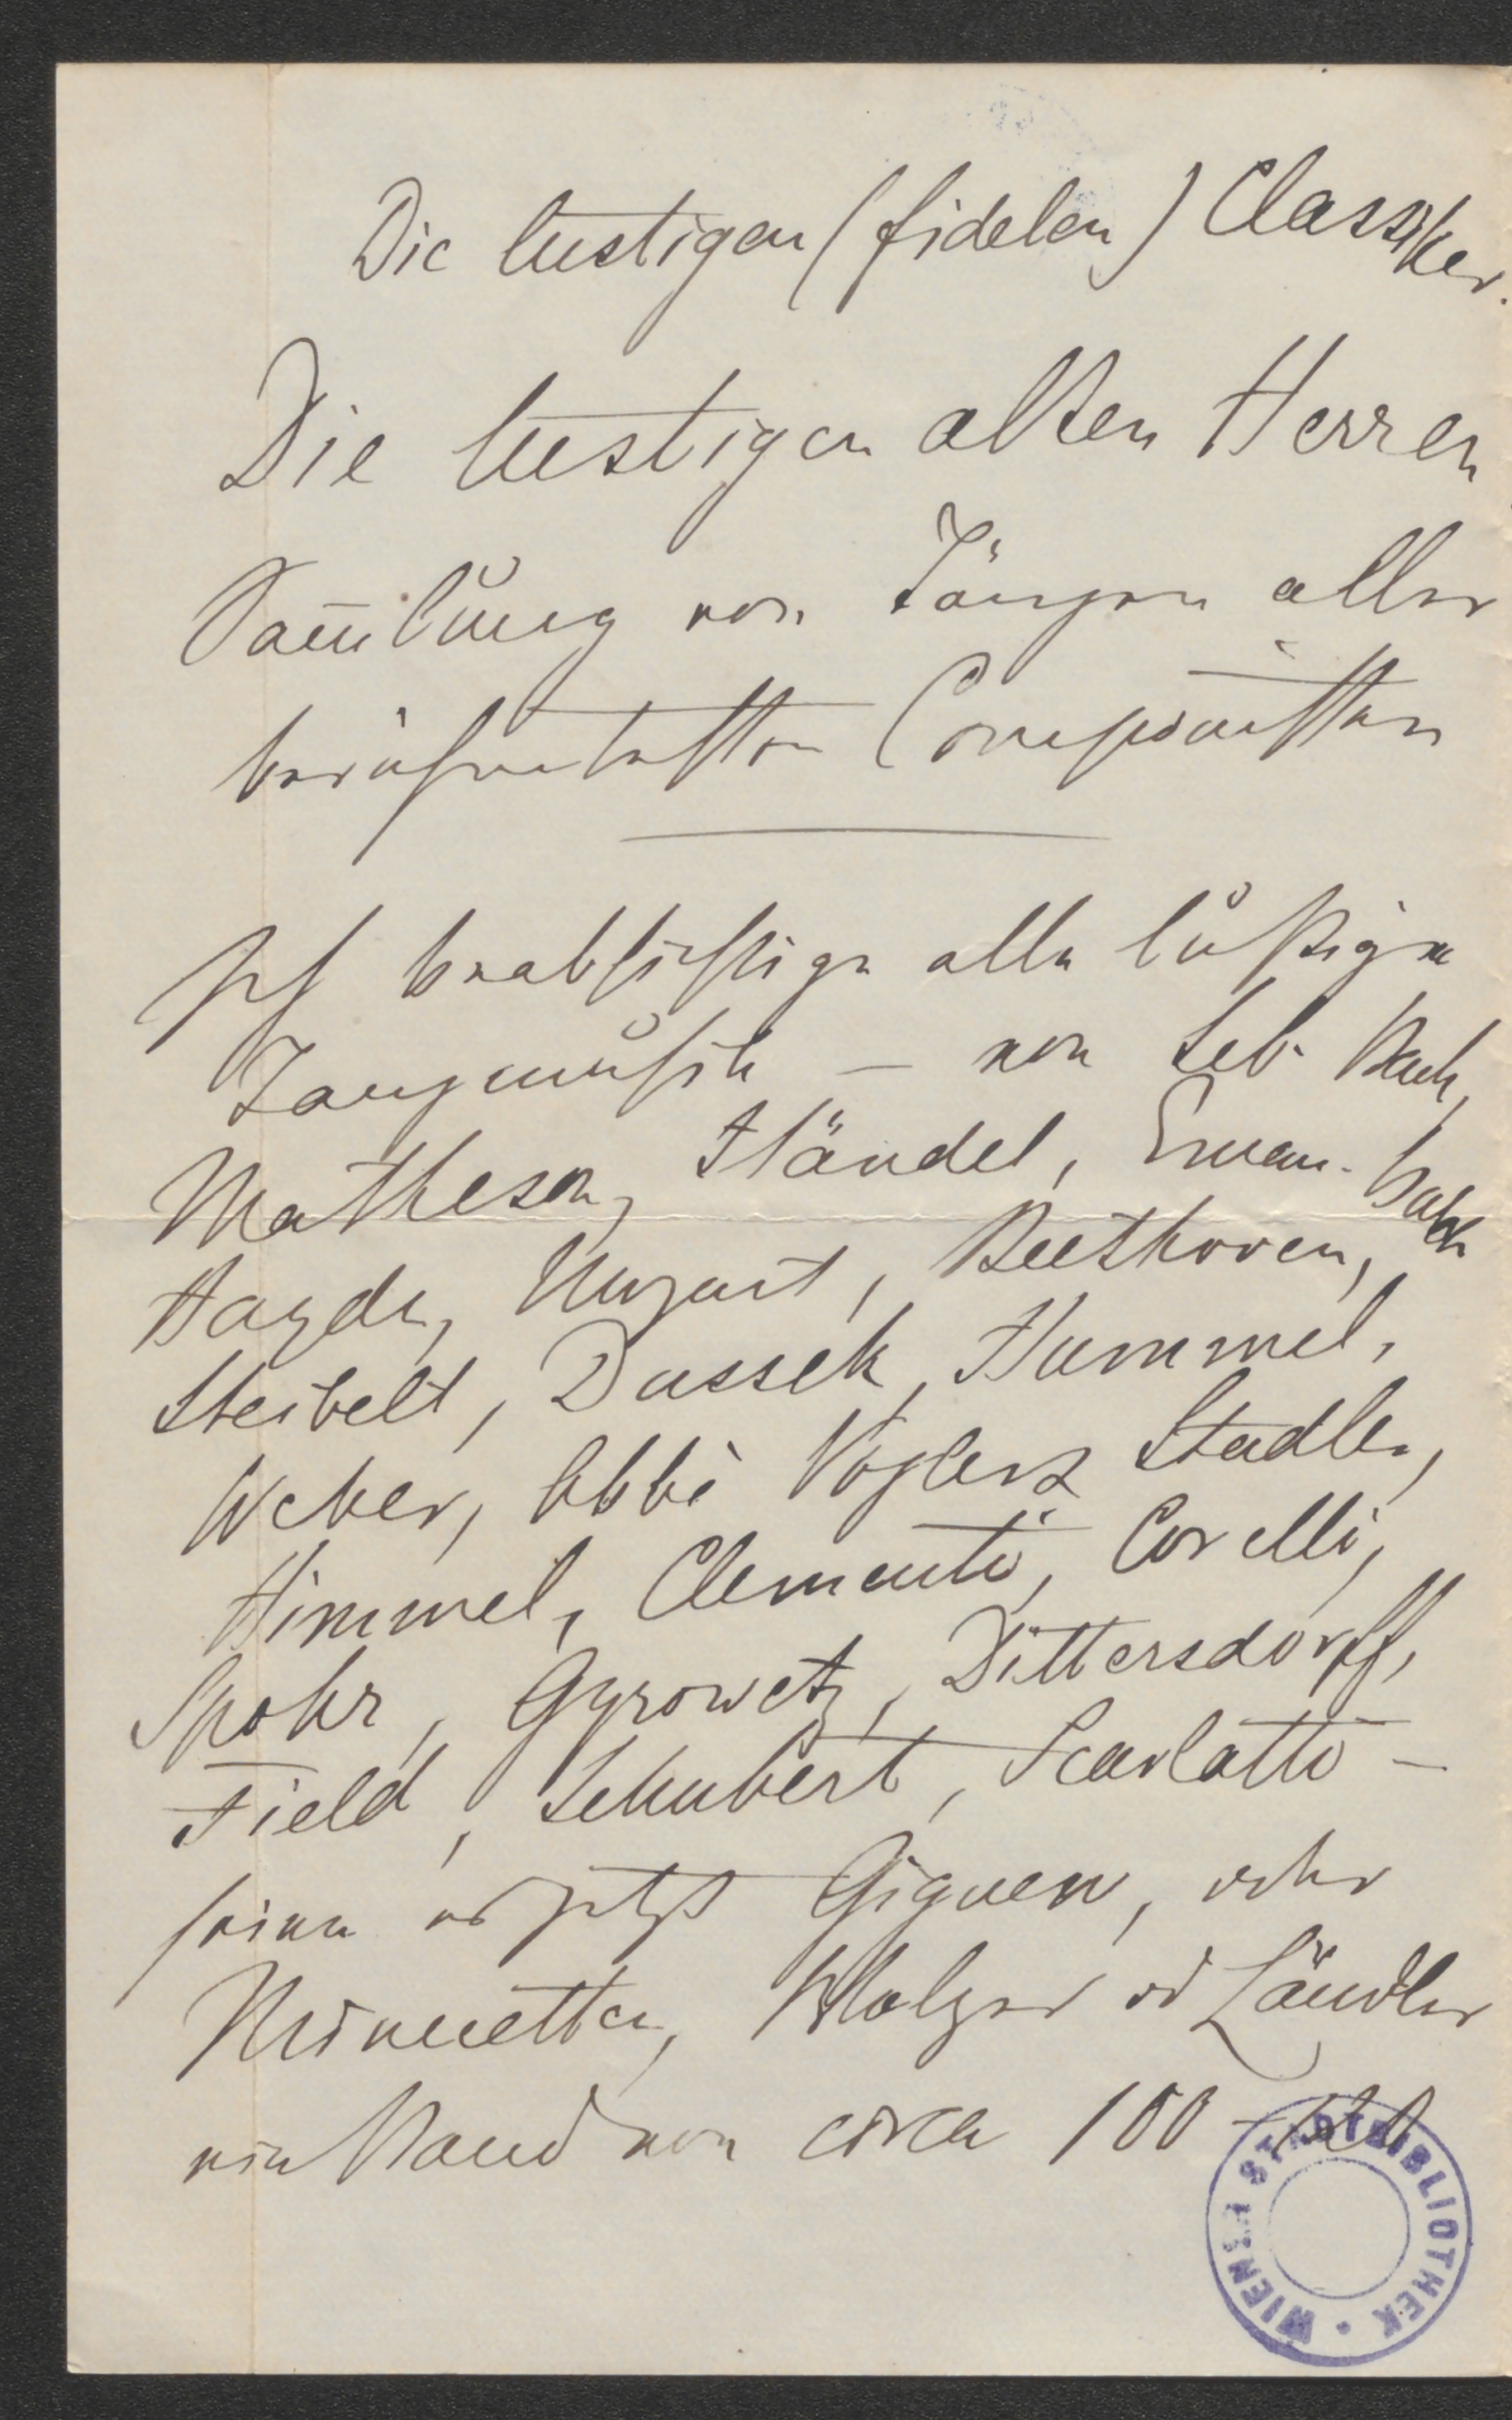 Die lustigen (fidelen) Classiker.
Die lustigen alten Herren
Sam̅lung von Tänzen aller
berühmtesten Componisten
Ich beabsichtige alle lustige
Tanzmusik – von Seb. Bach,
Matheson, Händel, Eman. Bach
Haydn, Mozart, Beethoven,
Steibelt, Dussek, Hummel,
Weber, Abbé Vogler, Stadler,
Himmel, Clementi, Corelli,
Spohr, Gyrowetz, Dittersdorff,
Field, Schubert, Scarlatti –
seien es jetzt Giguen, oder
Minuetten, Walzer od Ländler
ein Band von circa 100 - 120
WIENER STADTBIBLIOTHEK